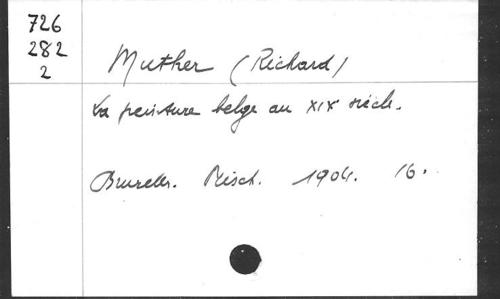 726
282
2
Muther (Richard)
La peinture belge au XIXe siècle.
Bruxelles. Misch. 1904. 16.